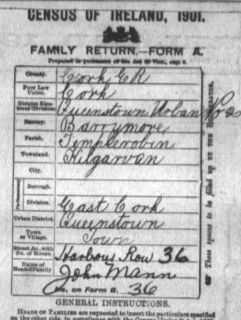 CENSUS OF IRELAND, 1901.
FAMILY RETURN.—FORM A.
County, Cork ER
Poor Law Union, Cork
District Electoral Division, Queenstown Urban No 2
Barony, Barrymore
Parish, Templerobin
Townland, Kilgarvan
City,
Borough,
Division, East Cork
Urban District, Queenstown
Town or Village, Town
Street, &c. with No. of House, Harbour Row 36
Name of Head of Family John Mann
No. on Form B. 36
GENERAL INSTRUCTIONS.
HEADS OF FAMILIES are requested to insert the particulars specified
on the other side, in compliance with the